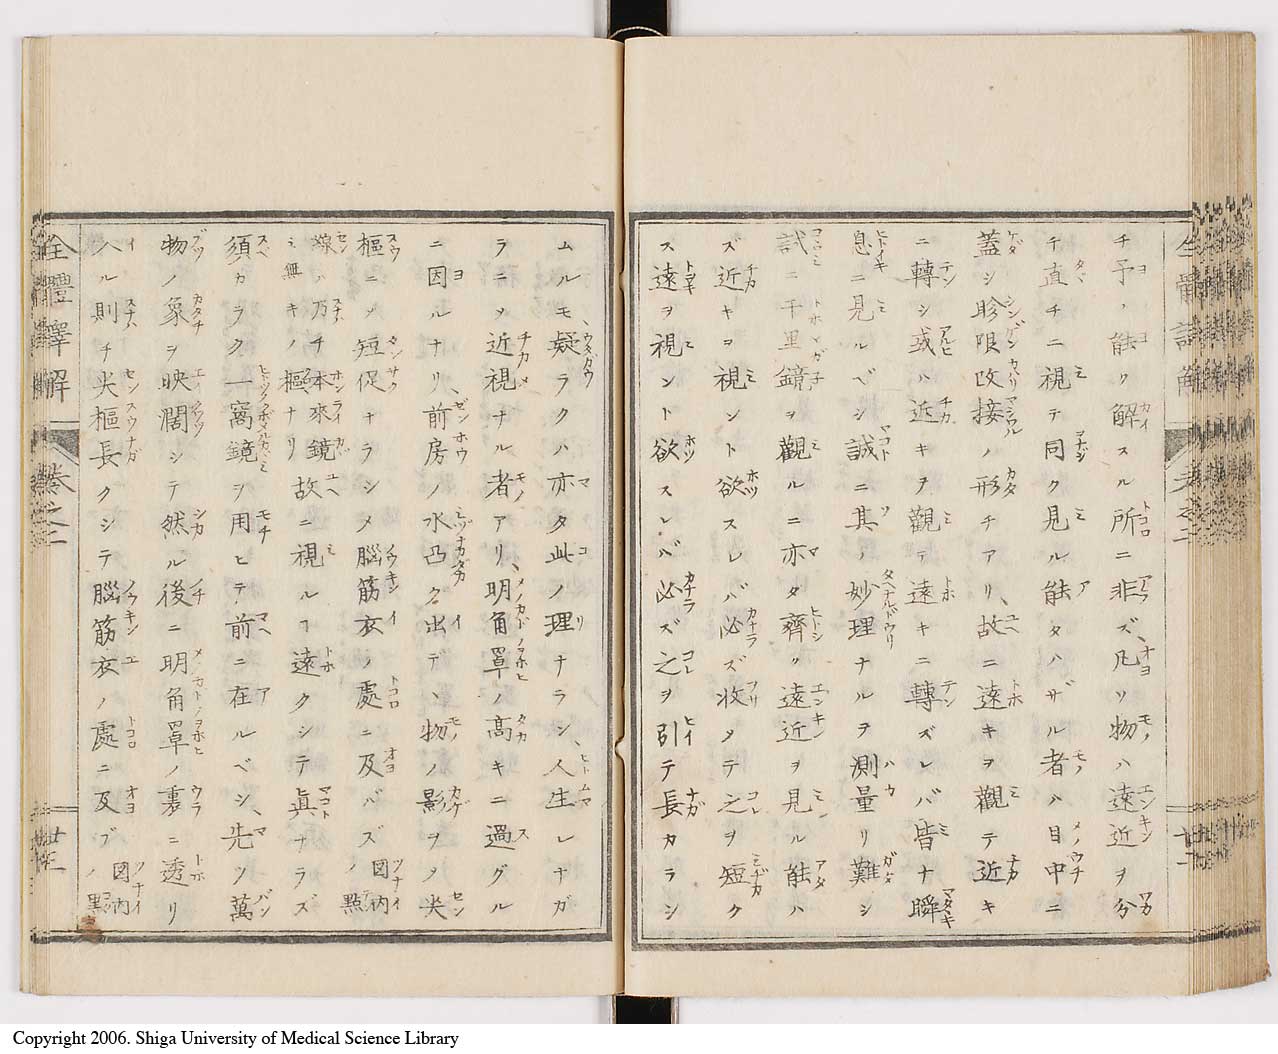 チ予ノ能ク解スル所ニ非ズ、凡ソ物ハ遠近ヲ分
チ直チニ視テ同ク見ル能タハザル者ハ目中ニ
蓋シ眕限改接ノ形チアリ、故ニ遠キヲ觀テ近キ
ニ轉シ或ハ近キヲ觀テ遠キニ轉ズレバ皆ナ瞬
息ニ見ルベシ誠ニ其ノ妙理ナルヲ測量リ難シ
試ニ千里鏡ヲ觀ルニ亦タ齊ク遠近ヲ見ル能ハ
ズ近キヲ視ント欲スレバ必ズ收メテ之ヲ短ク
ス遠ヲ視ント欲スレバ必ズ之ヲ引テ長カラシ
ムルモ疑ラクハ亦タ此ノ理ナラン、人生レナガ
ラニ乄近視ナル者アリ、明角罩ノ高キニ過グル
ニ因ルナリ、前房ノ水凸ク出デ、物ノ影ヲノ尖
樞ニ乄短促ナラシメ腦筋衣ノ處ニ及バズ圖内ノ點
線ハ乃チ本來鏡ミ無キノ樞ナリ故ニ視ルヿ遠クシテ眞ナラズ
須カラク一窩鏡ヲ用ヒテ前ニ在ルベシ、先ツ萬
物ノ象ヲ映濶シテ然ル後ニ明角罩ノ裏ニ透リ
入ル則チ尖樞長クシテ腦筋衣ノ處ニ及ブ圖内ノ點
全體譯解 卷之二 廿三
Copyright 2006. Shiga University of Medical Science Library